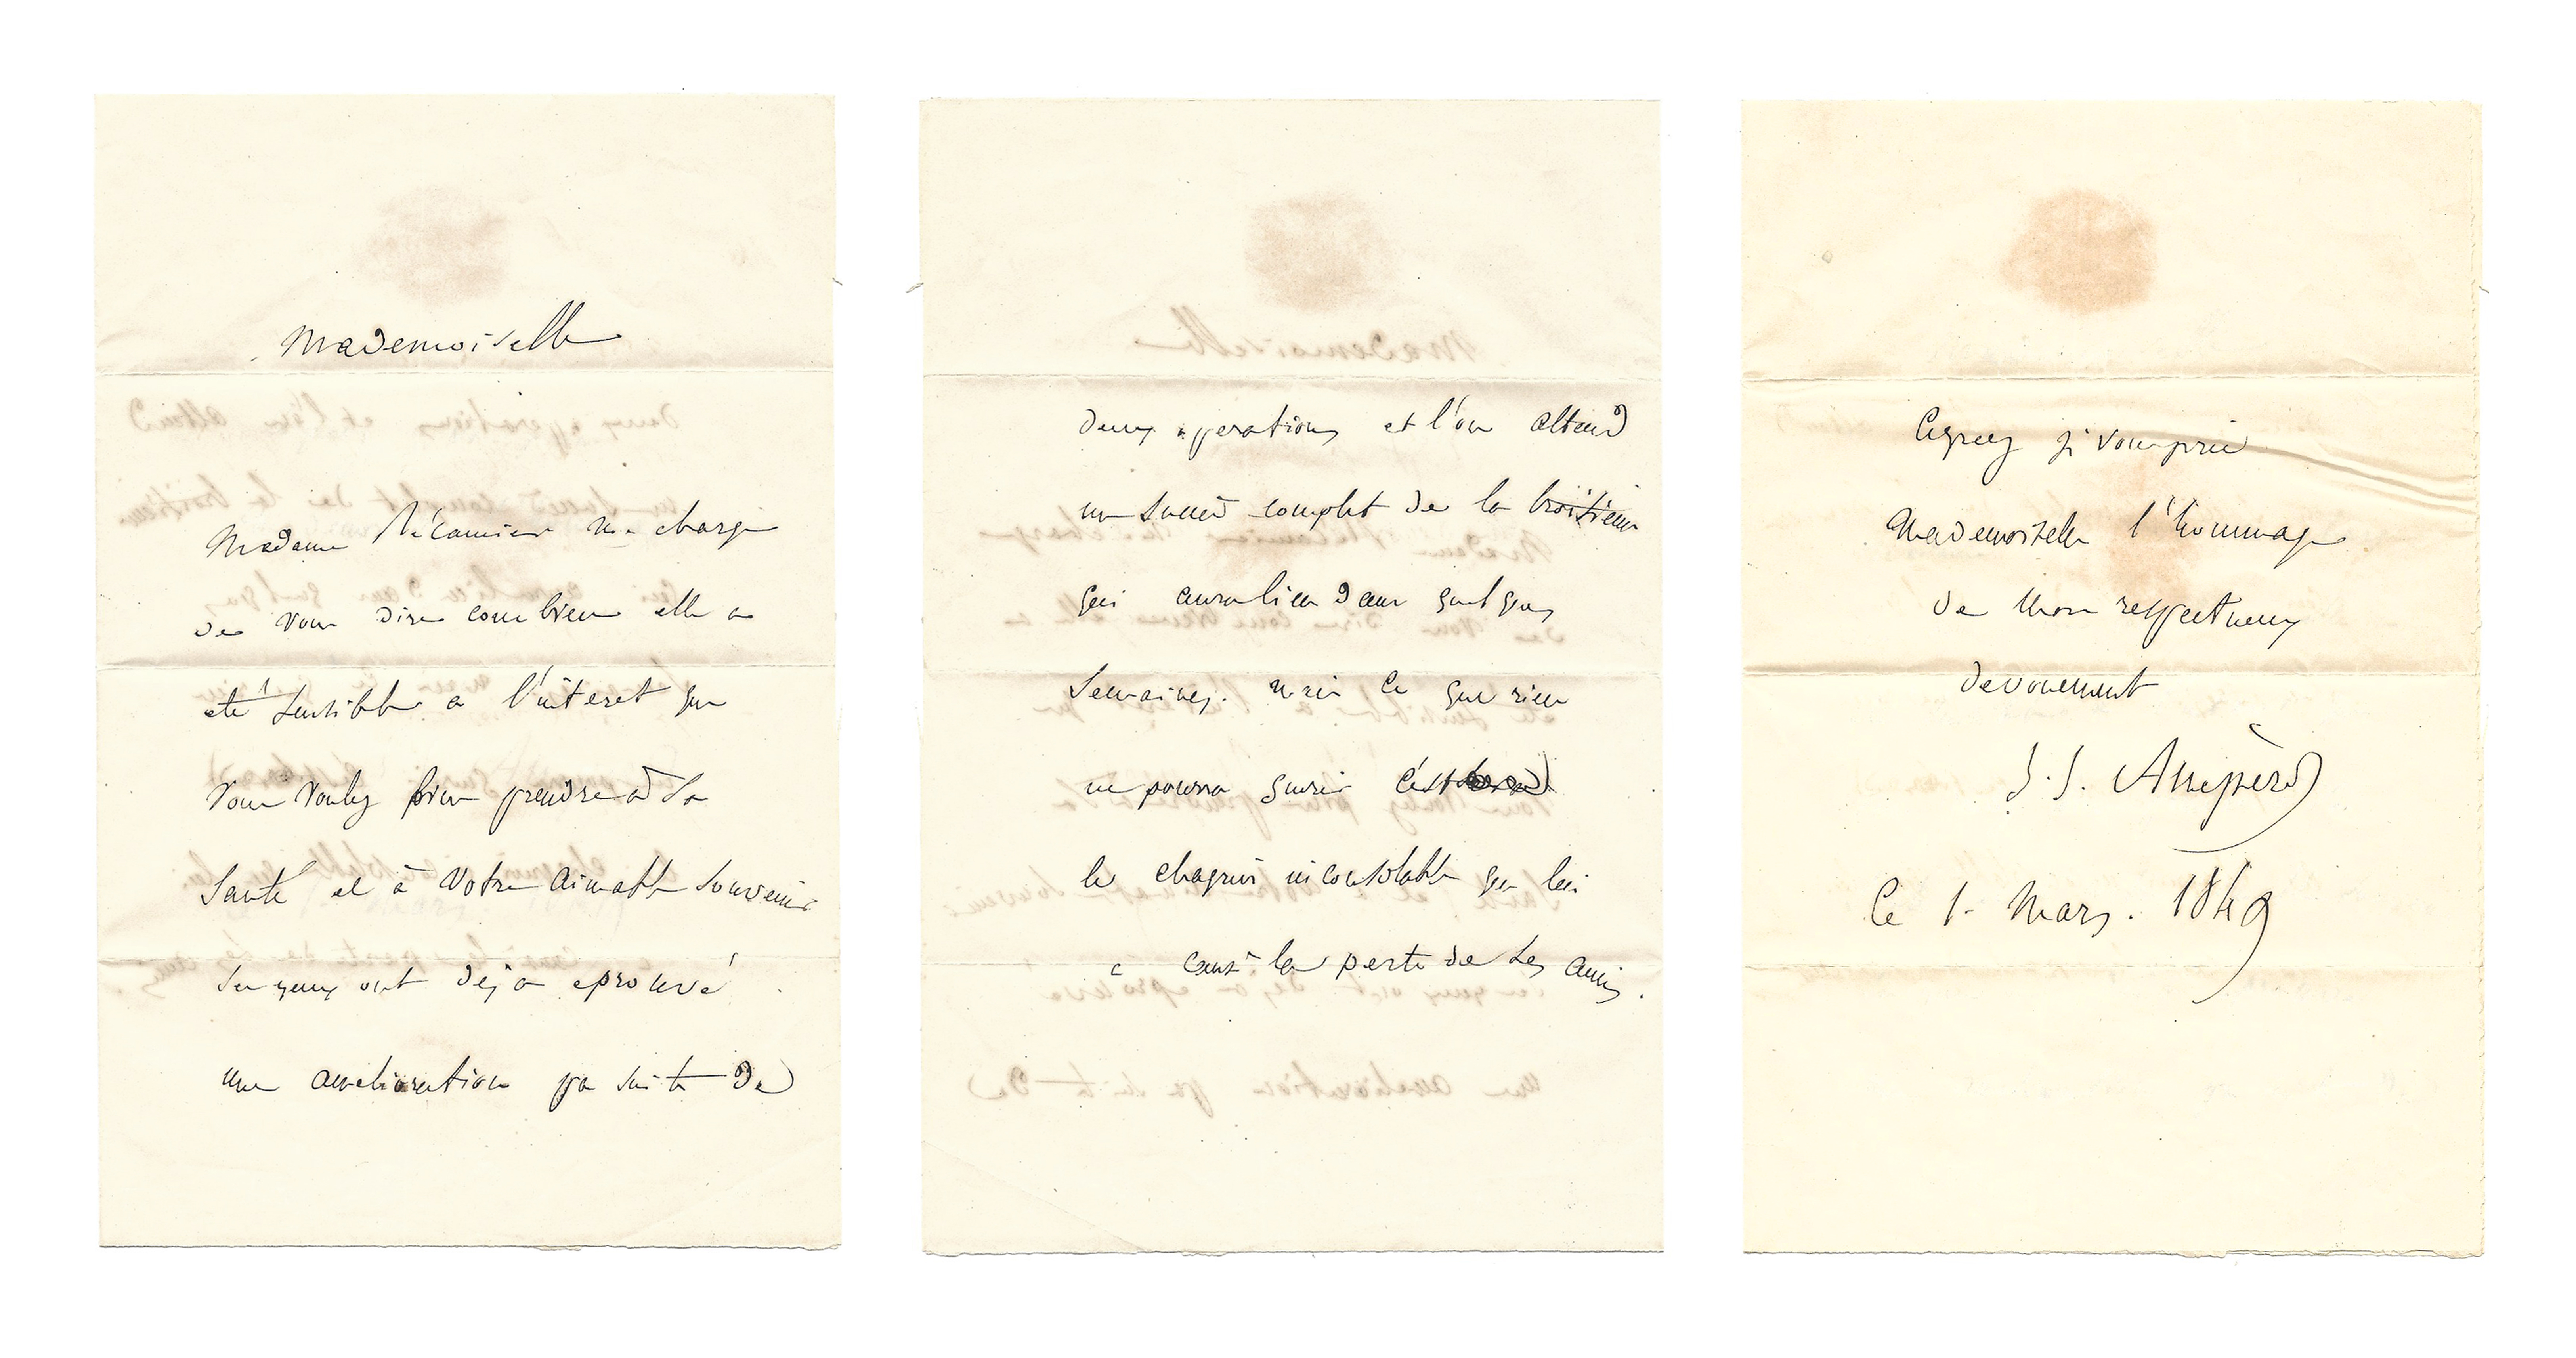 Mademoiselle
Madame Récamier me charge
de vous dire combien elle a
eté sensible a l'interet que
vous voulez bien prendre à sa
santé et à votre aimable souvenir
ses yeux ont deja eprouvé
une amelioration par suite de
deux operations et l'on attend
un succès complet de la troisieme
qui aura lieu dans quelques
semaines. mais ce que rien
ne pourra guerir c'est
le chagrin inconsolable que lui
a causé la perte de ses amis.
Agreez je vous prie
Mademoiselle l'hommage
de mon respectueux
devouement
J. J. Ampère
Ce 1. Mars. 1849